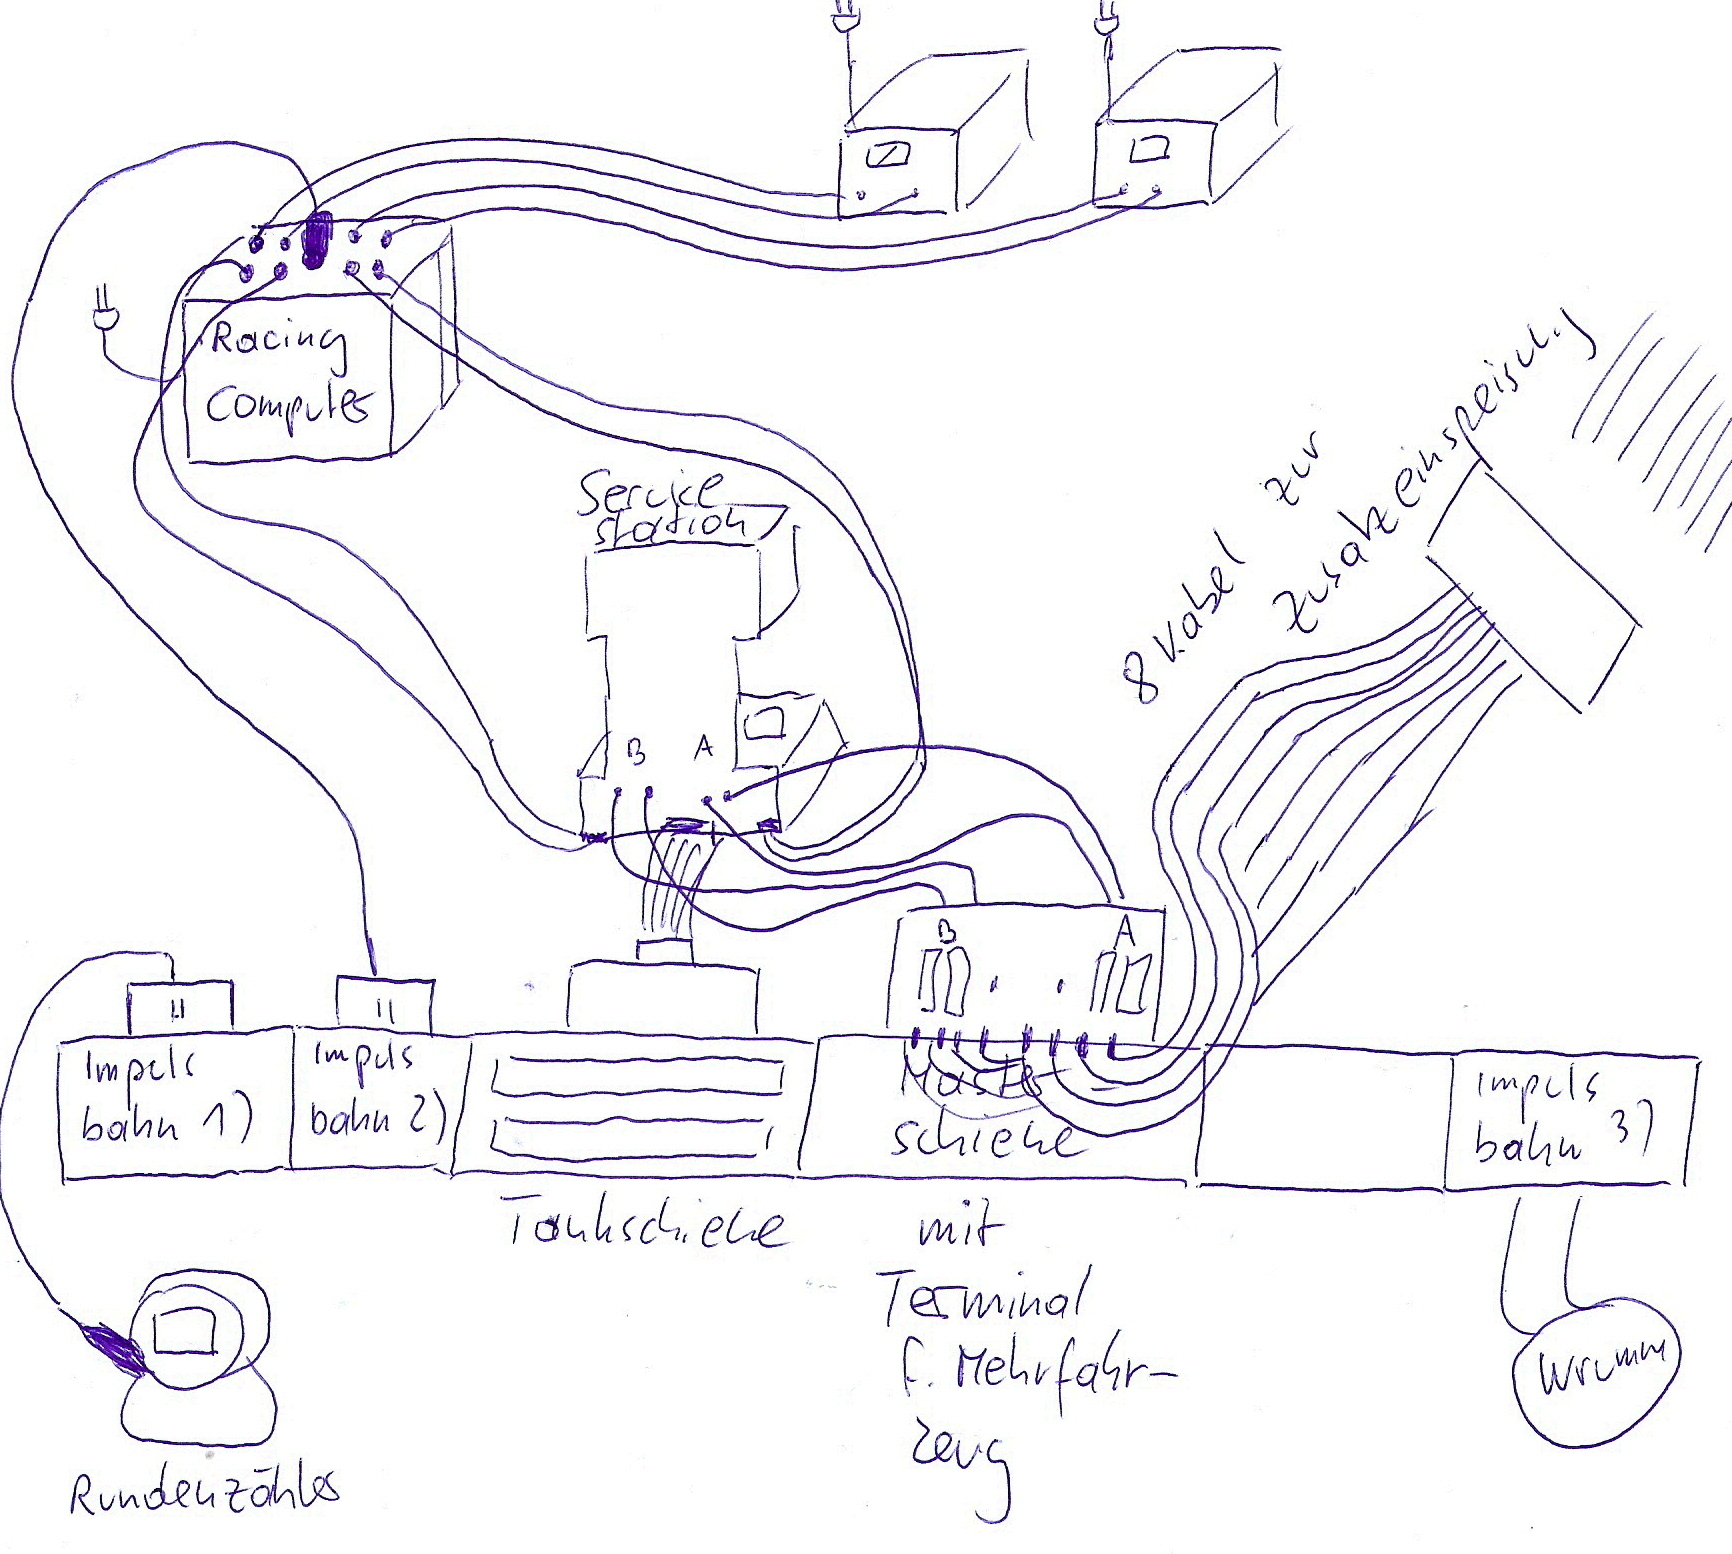 Racing
Computer
Service
station
8 Kabel zur
Zusatzeinspeisung
B A
B A
Impuls
bahn 1)
Impuls
bahn 2)
Master
schiene
Impuls
bahn 3)
Tankschiene
mit
Terminal
f. Mehrfahr-
zeug
Wrumm
Rundenzähler